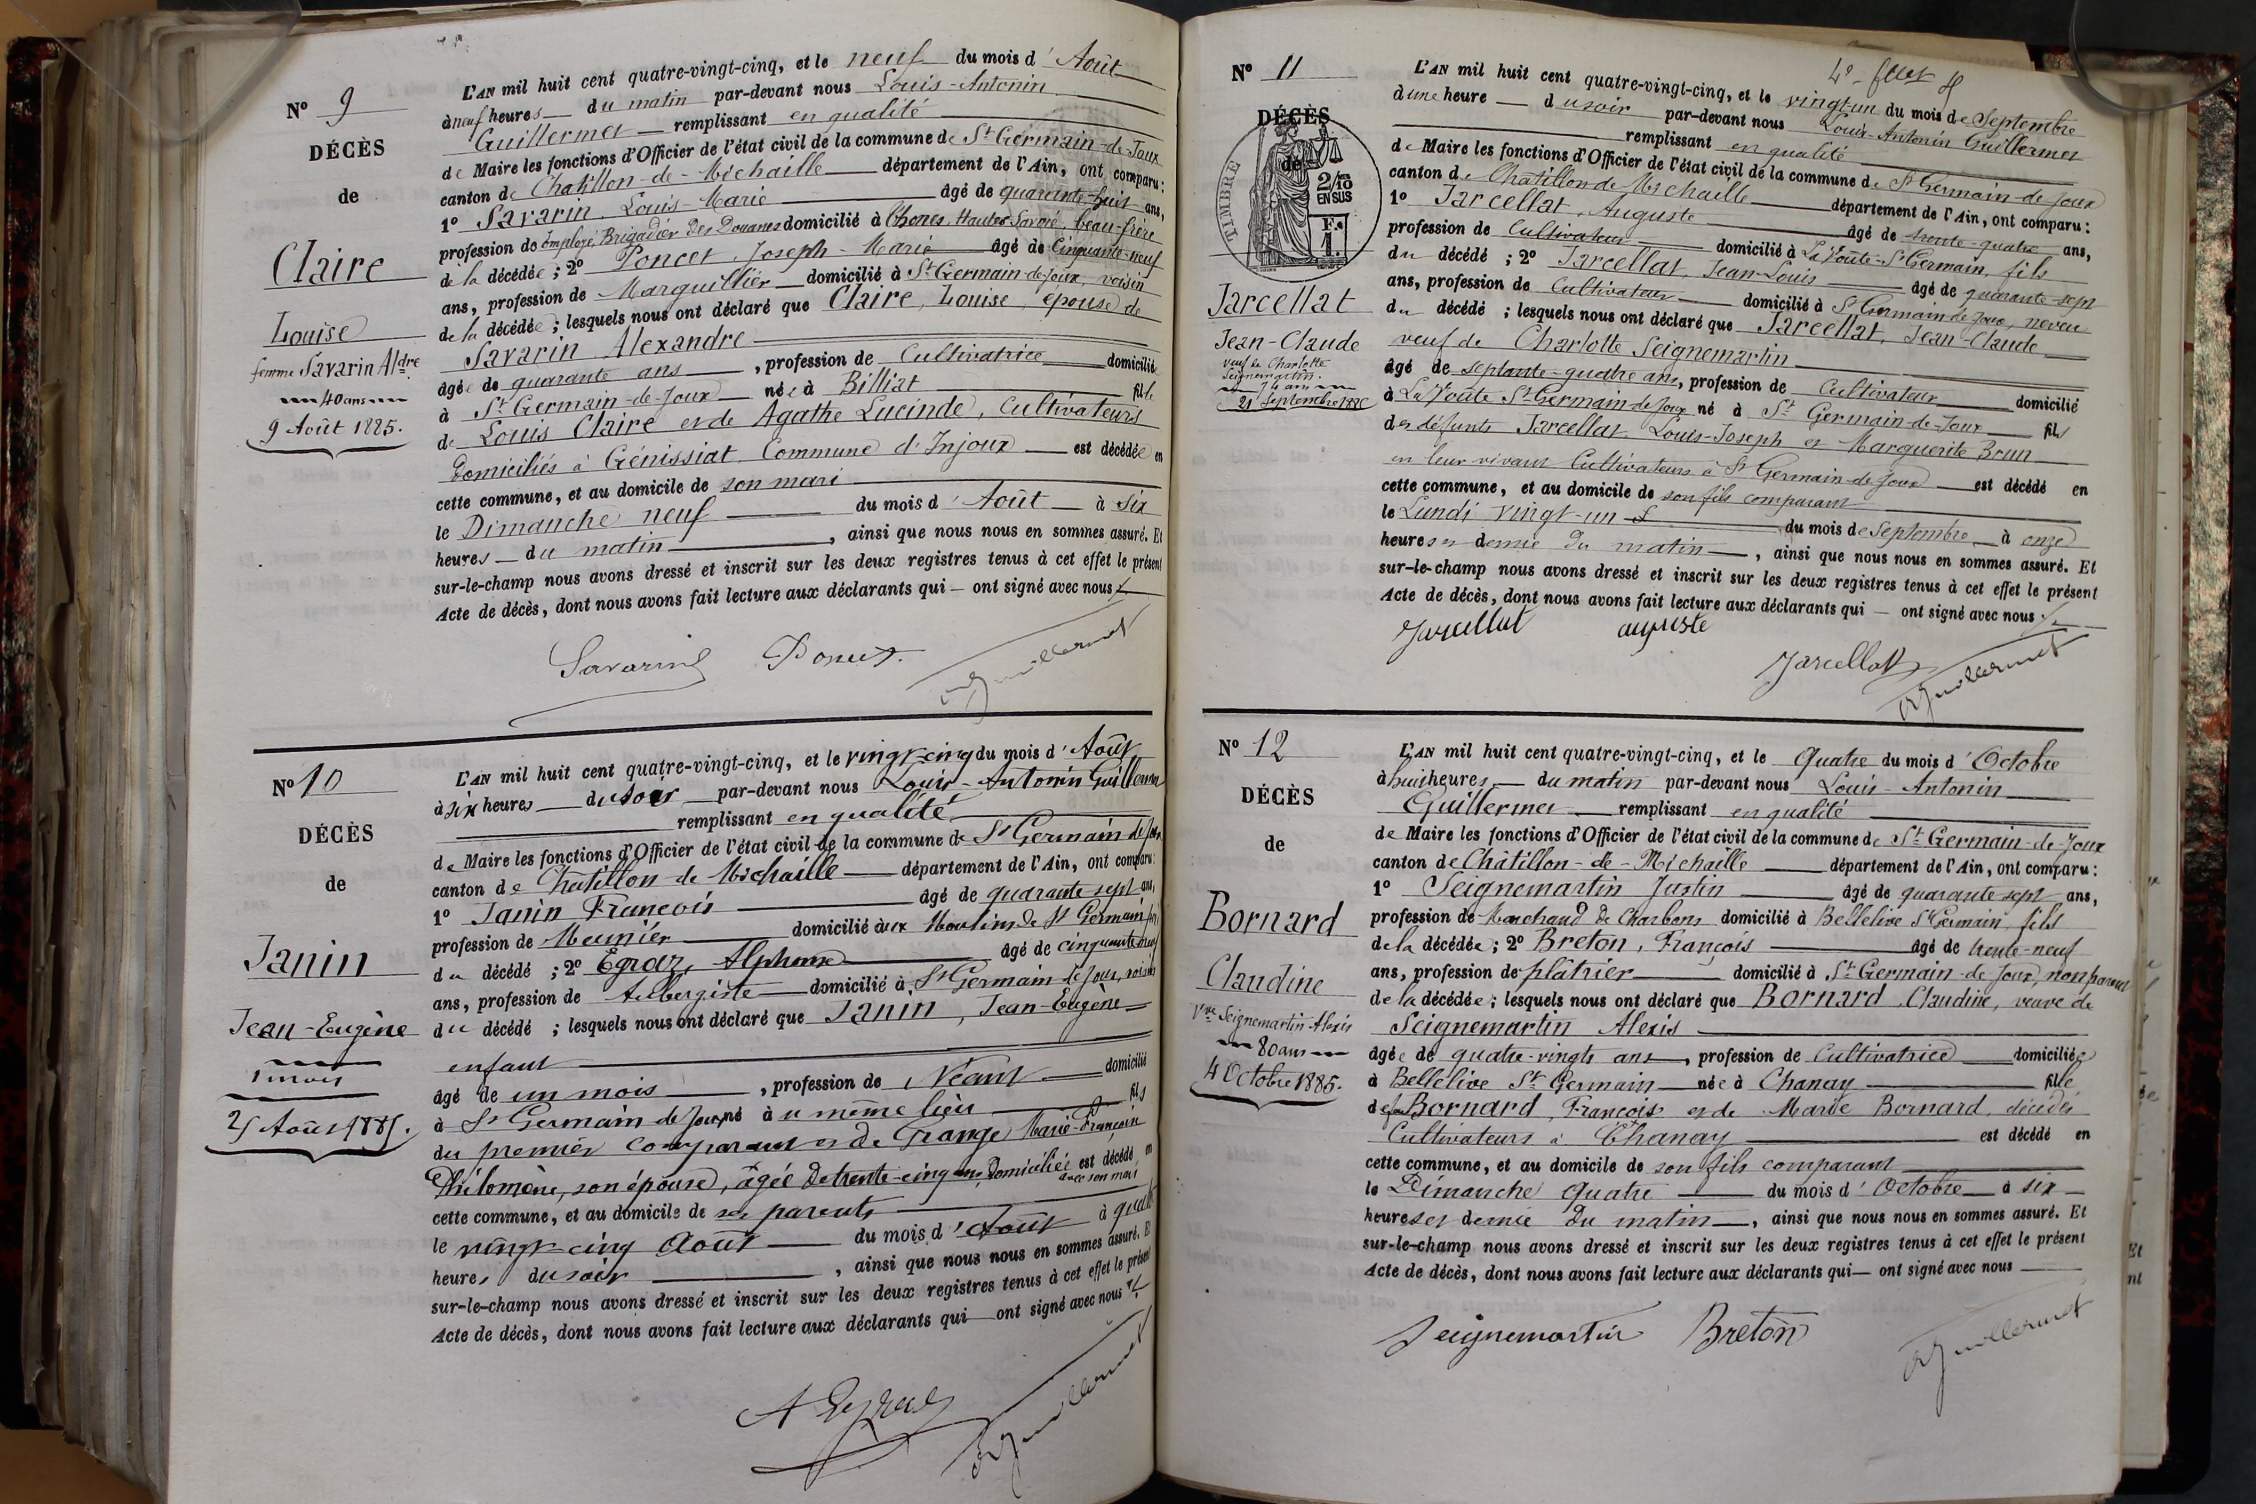 N° 9
DÉCÈS
de
Claire
Louise
femme Savarin Aldre
40 ans
9 Août 1885.
L'AN mil huit cent quatre-vingt-cinq, et le neuf du mois d' Août
à neuf heures du matin par-devant nous Louis-Antonin
Guillermet remplissant en qualité
de Maire les fonctions d'Officier de l'état civil de la commune de St Germain-de-Joux
canton de Chatillon-de-Michaille département de l'Ain, ont comparu:
1° Savarin Louis-Marie âgé de quarante-huit ans,
profession de Employé Brigadier des Douanes domicilié à Thones, Haute Savoie, beau-frère
de la décédée; 2° Poncet Joseph-Marie âgé de Cinquante-neuf
ans, profession de Marguillier domicilié à St Germain-de-Joux, voisin
de la décédée; lesquels nous ont déclaré que Claire, Louise, épouse de
Savarin Alexandre
âgée de quarante ans, profession de Cultivatrice domiciliée
à St Germain-de-Joux née à Billiat fille
de Louis Claire et de Agathe Lucinde, Cultivateurs
domiciliés à Génissiat Commune d'Injoux est décédée en
cette commune, et au domicile de son mari
le Dimanche neuf du mois d' Août à six
heures du matin, ainsi que nous nous en sommes assuré. Et
sur-le-champ nous avons dressé et inscrit sur les deux registres tenus à cet effet le présent
Acte de décès, dont nous avons fait lecture aux déclarants qui ont signé avec nous
Savarin Poncet Guillermet
N° 10
DÉCÈS
de
Janin
Jean-Eugène
1 mois
25 Août 1885.
L'AN mil huit cent quatre-vingt-cinq, et le vingt-cinq du mois d' Août
à six heures du soir par-devant nous Louis-Antonin Guillermet
remplissant en qualité
de Maire les fonctions d'Officier de l'état civil de la commune de St Germain de Joux
canton de Chatillon de Michaille département de l'Ain, ont comparu:
1° Janin François âgé de quarante sept ans,
profession de Meunier domicilié aux Moulins de St Germain
du décédé; 2° Egraz, Alphonse âgé de cinquante neuf
ans, profession de Aubergiste domicilié à St Germain de Joux, voisin
du décédé; lesquels nous ont déclaré que Janin, Jean-Eugène
enfant
âgé de un mois, profession de Néant domicilié
à St Germain de Joux né à u même lieu fils
du premier comparant et de Grange Marie-Françoise
Philomène, son épouse, âgée de trente-cinq ans, domiciliée est décédé en
avec son mari
cette commune, et au domicile de ses parents
le vingt-cinq Août du mois d' Août à quatre
heures du soir, ainsi que nous nous en sommes assuré. Et
sur-le-champ nous avons dressé et inscrit sur les deux registres tenus à cet effet le présent
Acte de décès, dont nous avons fait lecture aux déclarants qui ont signé avec nous
A Egraz Guillermet
N° 11
DÉCÈS
de
TIMBRE
2/10
EN SUS
F.
1.
Jarcellat
Jean-Claude
veuf de Charlotte
Seignemartin.
74 ans
21 Septembre
L'AN mil huit cent quatre-vingt-cinq, et le vingt-un du mois de Septembre
d'une heure du soir par-devant nous Louis-Antonin Guillermet
remplissant en qualité
de Maire les fonctions d'Officier de l'état civil de la commune de St Germain-de-Joux
canton de Chatillon de Michaille département de l'Ain, ont comparu:
1° Jarcellat, Auguste âgé de trente-quatre ans,
profession de Cultivateur domicilié à La Voûte-St Germain, fils
du décédé; 2° Jarcellat, Jean-Louis âgé de quarante-sept
ans, profession de Cultivateur domicilié à St Germain de Joux, neveu
du décédé; lesquels nous ont déclaré que Jarcellat, Jean-Claude
veuf de Charlotte Seignemartin
âgé de septante-quatre ans, profession de Cultivateur domicilié
à La Voûte St Germain de Joux né à St Germain-de-Joux fils
des défunts Jarcellat Louis-Joseph et Marguerite Brun
en leur vivant Cultivateurs à St Germain-de-Joux est décédé en
cette commune, et au domicile de son fils comparant
le Lundi vingt-un du mois de Septembre à onze
heures et demie du matin, ainsi que nous nous en sommes assuré. Et
sur-le-champ nous avons dressé et inscrit sur les deux registres tenus à cet effet le présent
Acte de décès, dont nous avons fait lecture aux déclarants qui ont signé avec nous
Jarcellat auguste
Jarcellat Guillermet
N° 12
DÉCÈS
de
Bornard
Claudine
Vve Seignemartin Alexis
80 ans
4 Octobre 1885.
L'AN mil huit cent quatre-vingt-cinq, et le Quatre du mois d' Octobre
à huit heures du matin par-devant nous Louis-Antonin
Guillermet remplissant en qualité
de Maire les fonctions d'Officier de l'état civil de la commune de St Germain-de-Joux
canton de Châtillon-de-Michaille département de l'Ain, ont comparu:
1° Seignemartin Justin âgé de quarante sept ans,
profession de Marchand de Charbons domicilié à Bellelive St Germain, fils
de la décédée; 2° Breton, François âgé de trente-neuf
ans, profession de plâtrier domicilié à St Germain-de Joux, non parent
de la décédée; lesquels nous ont déclaré que Bornard Claudine, veuve de
Seignemartin Alexis
âgée de quatre-vingts ans, profession de Cultivatrice domiciliée
à Bellelive St Germain née à Chanay fille
de feu Bornard, François et de Marie Bornard, décédés
Cultivateurs à Chanay est décédé en
cette commune, et au domicile de son fils comparant
le Dimanche Quatre du mois d' Octobre à six
heures et demie du matin, ainsi que nous nous en sommes assuré. Et
sur-le-champ nous avons dressé et inscrit sur les deux registres tenus à cet effet le présent
Acte de décès, dont nous avons fait lecture aux déclarants qui ont signé avec nous
Seignemartin Breton Guillermet